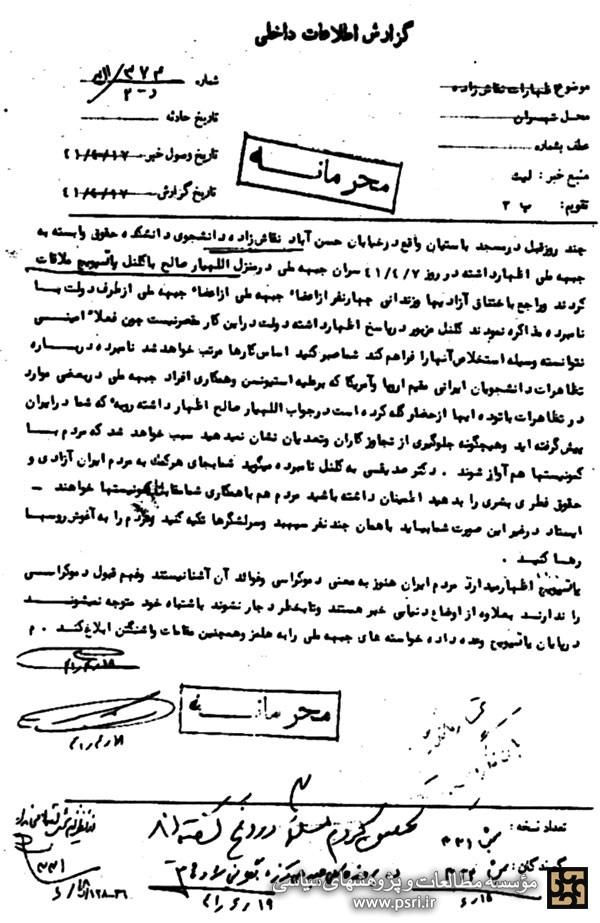 گزارش اطلاعات داخلی
موضوع اظهارات نقاش زاده
شماره ۳۷۴
محل تهران
تاریخ حادثه
عطف بشماره
تاریخ وصول خبر ۴۱/۴/۱۷
منبع خبر : لیث
تاریخ گزارش ۴۱/۴/۱۷
تقویم : ب ۲
محرمانه
چند روز قبل در مسجد باستیان واقع در خیابان حسن آباد نقاش زاده دانشجوی دانشکده حقوق وابسته به
جبهه ملی اظهار داشته در روز ۴۱/۴/۷ سران جبهه ملی در منزل اللهیار صالح با کلنل یاتسویچ ملاقات
کردند و راجع باختناق آزادیها و زندانی چهار نفر از اعضاء جبهه ملی از اعضاء جبهه ملی از طرف دولت بـا
نامبرده مذاکره نمودند کلنل مزبور در پاسخ اظهار داشته دولت در این کار مقصر نیست چون فعلا" امینـی
نتوانسته وسیله استخلاص آنها را فراهم کند شما صبر کنید اساس کارها مرتب خواهد شد نامبرده در بـاره
تظاهرات دانشجویان ایرانی مقیم اروپا و آمریکا که بر علیه استیونسن و همکاری افراد جبهه ملی در بعضی موارد
در تظاهرات با توده ایها از حضار گله کرده است در جواب اللهیار صالح اظهار داشته رویه ای که شما در ایران
پیش گرفته اید و هیچگونه جلوگیری از تجاوز کاران و متعدیان نشان نمیدهید سبب خواهد شد که مردم بـا
کمونیستها هم آواز شوند . دکتر صدیقی به کلنل نامبرده میگوید شما بجای هر کمک به مردم ایران آزادی و
حقوق فطری بشری را بدهید اطمینان داشته باشید مردم هم با همکاری شما مقابل کمونیستها خواهند -
ایستاد در غیر این صورت شما بیاید با همان چند نفر سپهبد و سرلشگرها تکیه کنید و مردم را به آغوش روسها
رها کنید .
یاتسویچ اظهار میدارد مردم ایران هنوز به معنی دموکراسی و فوائد آن آشنا نیستند و فهم قبول دموکراسی
را ندارند بعلاوه از اوضاع دنیا بی خبر هستند و تا بخطر دچار نشوند باشتباه خود متوجه نمیشونـد
در پایان یاتسویچ وعده داده خواسته های جبهه ملی را به هلمز و همچنین مقامات واشنگتن ابلاغ کند . م
محرمانه
تعداد نسخه :
گیرندگان :
۱۹/۴/۴۱
موسسه مطالعات و پژوهشهای سیاسی
www.psri.ir